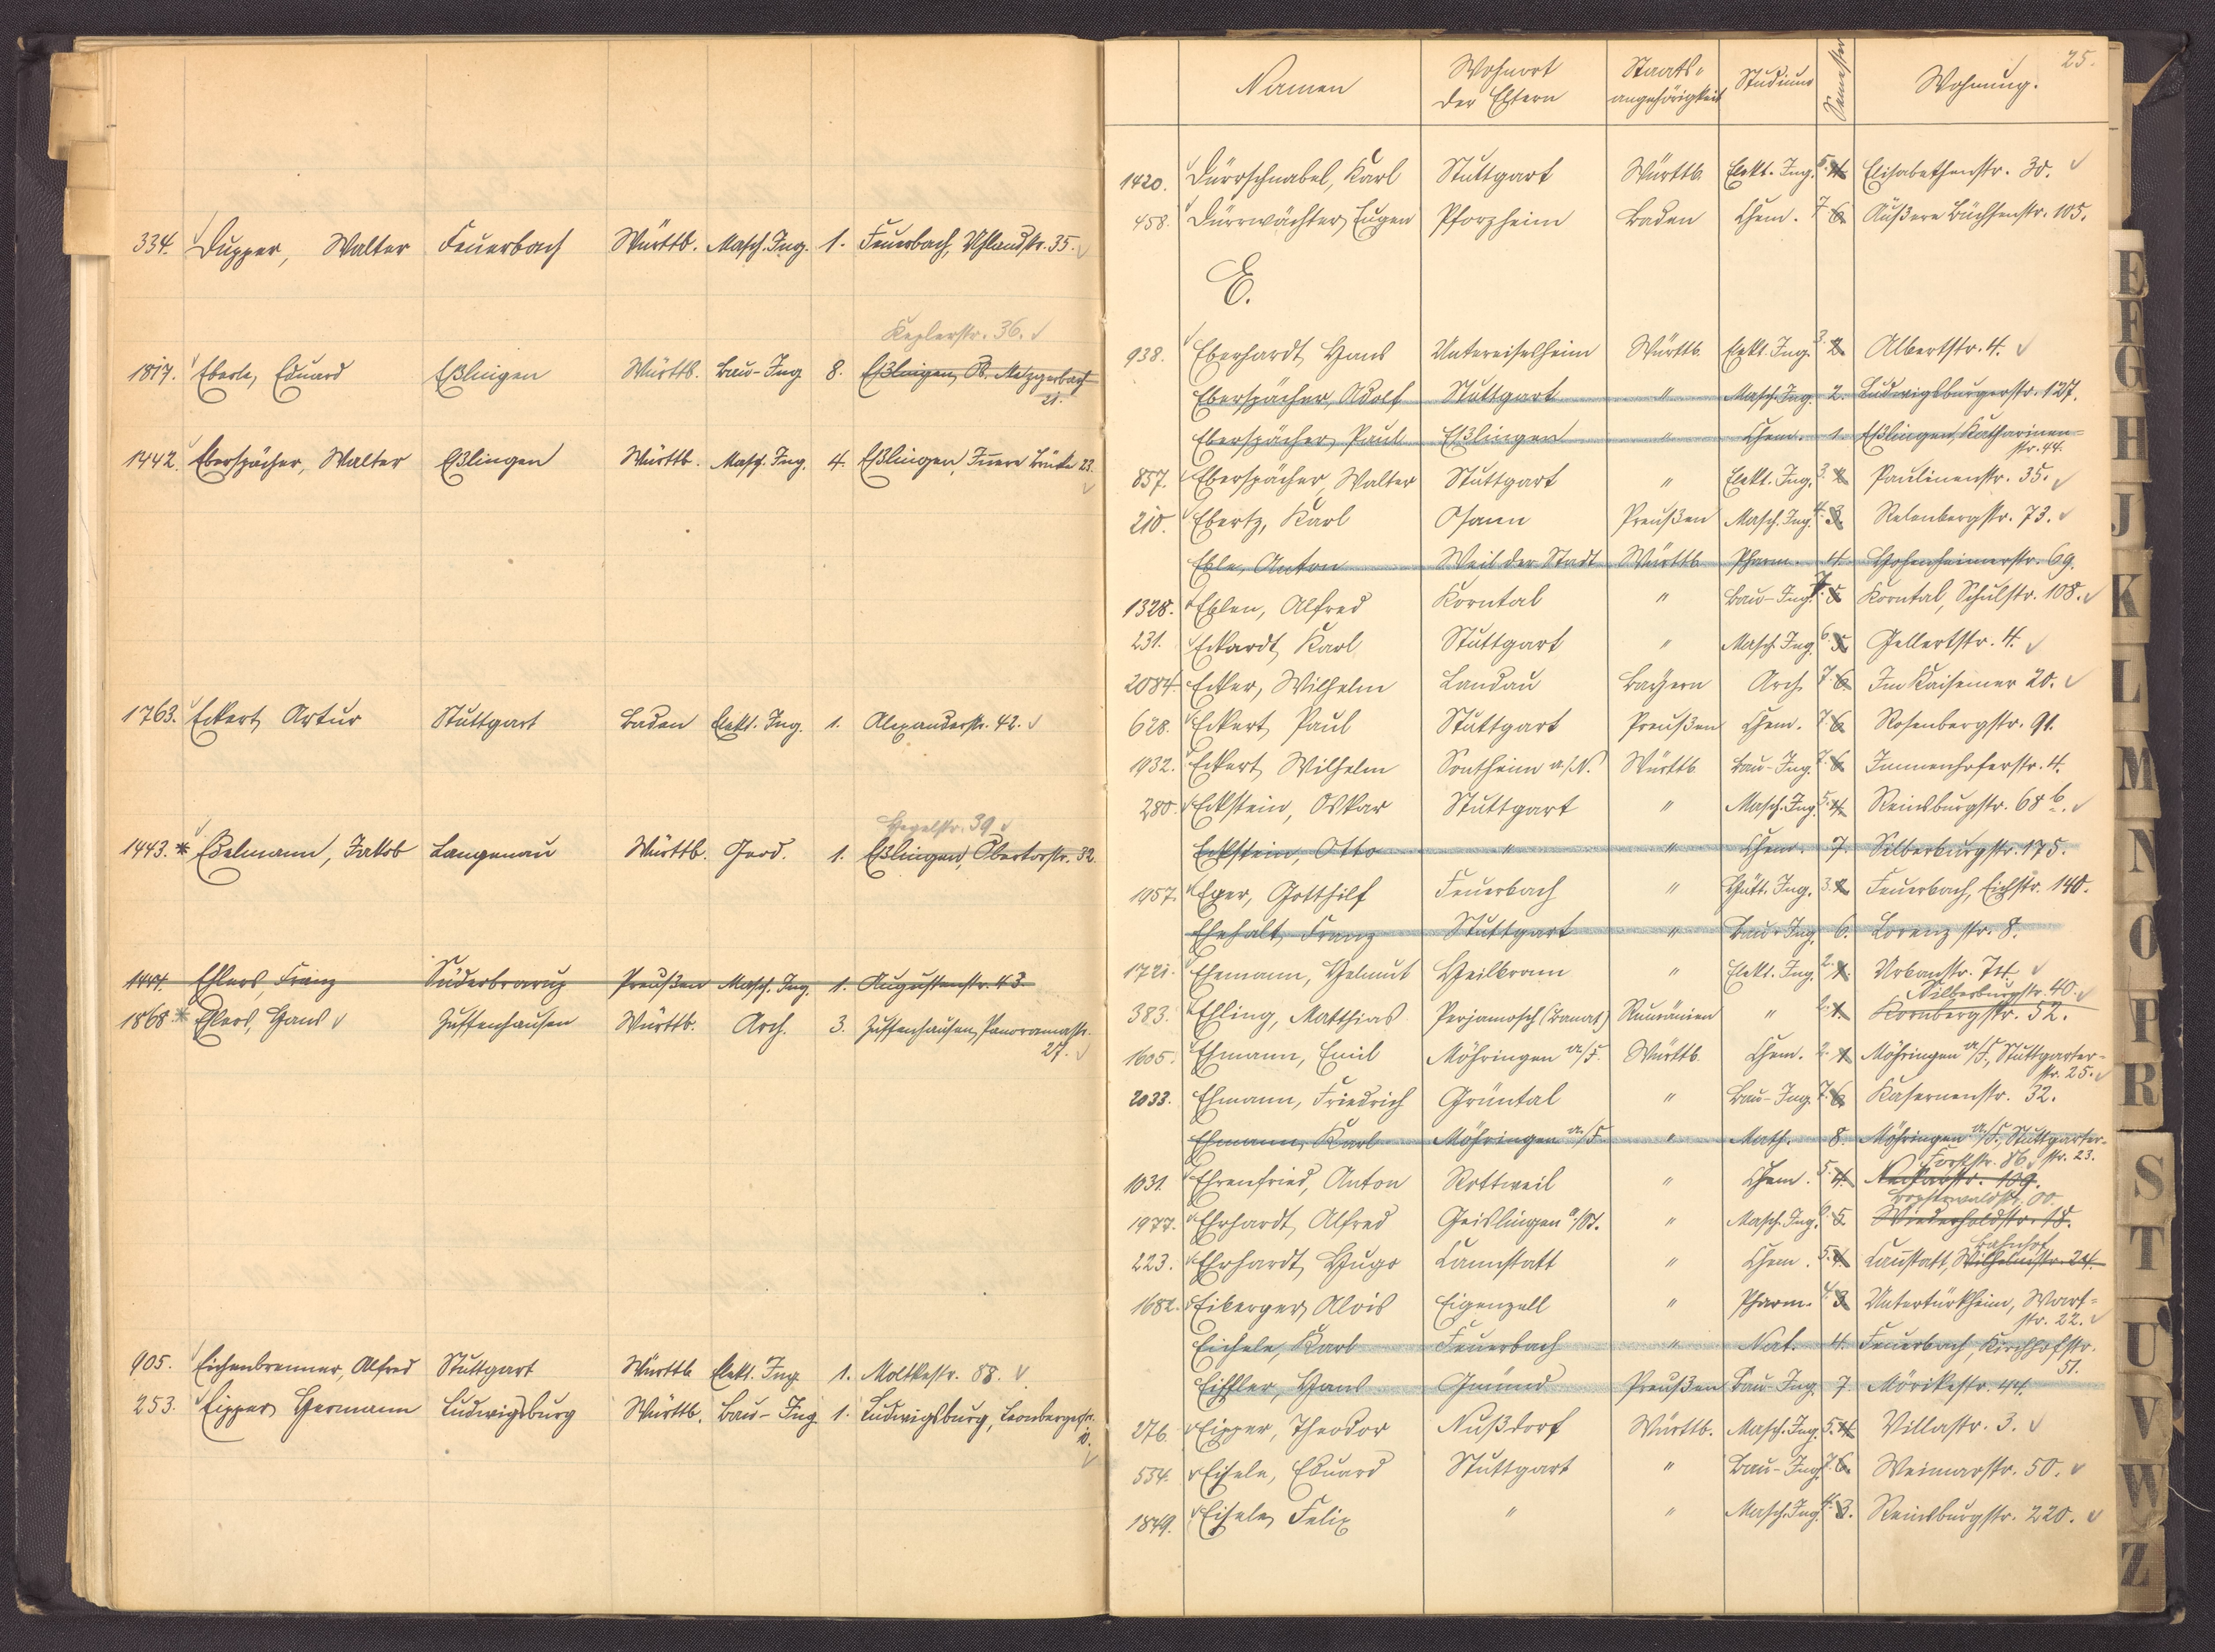 334. Dupper, Walter Feuerbach Württb. Masch. Ing. 1. Feuerbach, Uhlandstr. 35.
Keplerstr. 36.
1817. Eberle, Eduard Eßlingen Württb. Bau-Ing. 8. Eßlingen, Ob. Metzgerbach
21.
1442. Eberspächer, Walter Eßlingen Württb. Masch. Ing. 4. Eßlingen, Innere Brücke 23.
1763. Eckert, Artur Stuttgart Baden Elekt. Ing. 1. Alexanderstr. 42.
Hegelstr. 39
1443. * Edelmann, Jakob Langenau Württb. Geod. 1. Eßlingen, Obertorstr. 32.
1444. Ehlers, Franz Süderbrarup Preußen Masch. Ing. 1. Augustenstr. 43.
1868. * Ehlers, Hans Zuffenhausen Württb. Arch. 3. Zuffenhausen, Panoramastr.
27.
905. Eichenbrenner, Alfred Stuttgart Württb. Elekt. Ing. 1. Moltkestr. 88.
253. Eipper, Hermann Ludwigsburg Württb. Bau-Ing. 1. Ludwigsburg, Leonbergerstr.
10.
25.
Namen Wohnort der Eltern Staats-angehörigkeit Studium Semester Wohnung.
1420. Dürrschnabel, Karl Stuttgart Württb. Elekt. Ing. 5. 4. Elisabethenstr. 30.
458. Dürrwächter, Eugen Pforzheim Baden Chem. 7 6. Äußere Büchsenstr. 105.
E.
938. Eberhardt, Hans Untereisesheim Württb. Elekt. Ing. 3. 2. Albertstr. 4.
Eberspächer, Adolf Stuttgart " Masch. Ing. 2. Ludwigsburgerstr. 127.
Eberspächer, Paul Eßlingen " Chem. 1. Eßlingen, Katharinen-
str. 44.
857. Eberspächer, Walter Stuttgart " Elekt. Ing. 3. Paulinenstr. 35.
210. Ebertz, Karl Osann Preußen Masch. Ing. 4. 3. Relenbergstr. 73.
Eble, Anton Weil der Stadt Württb. Pharm. 4. Hohenheimerstr. 69.
1328. Eblen, Alfred Korntal " Bau-Ing. 7. 5. Korntal, Schulstr. 108.
231. Eckardt, Karl Stuttgart " Masch. Ing. 6. 5. Gellertstr. 4.
2084. Ecker, Wilhelm Landau Bayern Arch. 7. 6. Im Kaisemer 20.
628. Eckert, Paul Stuttgart Preußen Chem. 7. 6. Rosenbergstr. 91.
1932. Eckert, Wilhelm Sontheim a./N. Württb. Bau-Ing. 7. 6. Immenhoferstr. 4.
280. Eckstein, Oskar Stuttgart " Masch. Ing. 5. 4. Reinsburgstr. 68 b.
Eckstein, Otto " " Chem. 7. Silberburgstr. 175.
1957. Eger, Gotthilf Feuerbach " Hütt. Ing. 3. 2. Feuerbach, Eichstr. 140.
Ehehalt, Franz Stuttgart " Bau-Ing. 6. Lorenzstr. 8.
1721. Ehemann, Helmut Heilbronn " Elekt. Ing. 2. 1. Urbanstr. 74.
Silberburgstr. 40.
383. Ehling, Matthias Perjamosch (Banat) Rumänien " 2. 1. Kornbergstr. 52.
1605. Ehmann, Emil Möhringen a/F. Württb. Chem. 2. 1. Möhringen a/F., Stuttgarter-
str. 25.
2033. Ehmann, Friedrich Grüntal " Bau-Ing. 7. 6. Kasernenstr. 32.
Ehmann, Karl Möhringen a./F. " Math. 8. Möhringen a/F., Stuttgarter-
str. 23.
Forststr. 86.
1031. Ehrenfried, Anton Rottweil " Chem. 5. 4. Neckarstr. 109.
1977. Ehrhardt, Alfred Geislingen a/St. " Masch. Ing. 6. 5. Wiederholdstr. 18.
Bahnhof
223. Ehrhardt, Hugo Cannstatt " Chem. 5. 4. Cannstatt, Wilhelmstr. 24.
1682. Eiberger, Alois Eigenzell " Pharm. 4. 3. Untertürkheim, Wart-
str. 22.
Eichele, Karl Feuerbach " Nat. 4. Feuerbach, Kirchhofstr.
51.
Eichler, Hans Gmünd Preußen Bau-Ing. 7. Mörikestr. 44.
276. Eipper, Theodor Nußdorf Württb. Masch. Ing. 5. 4. Villastr. 3.
534. Eisele, Eduard Stuttgart " Bau-Ing. 7. 6. Weimarstr. 50.
1849. Eisele, Felix " " Masch. Ing. 4. 3. Reinsburgstr. 220.
E
F
G
H
J
K
L
M
N
O
P
R
S
T
U
V
W
Z